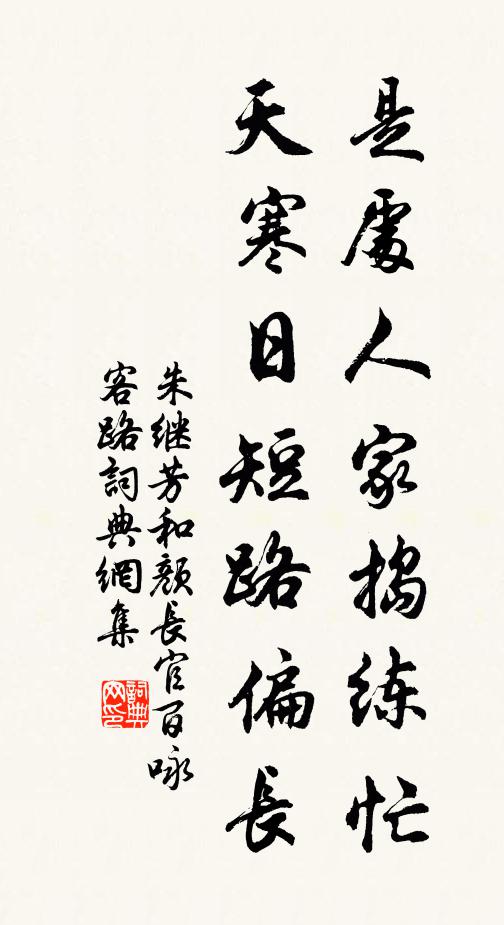 是處人家搗练忙
天寒日短路偏長
朱继芳和颜長官百咏
客路詞典網集
詞典网印